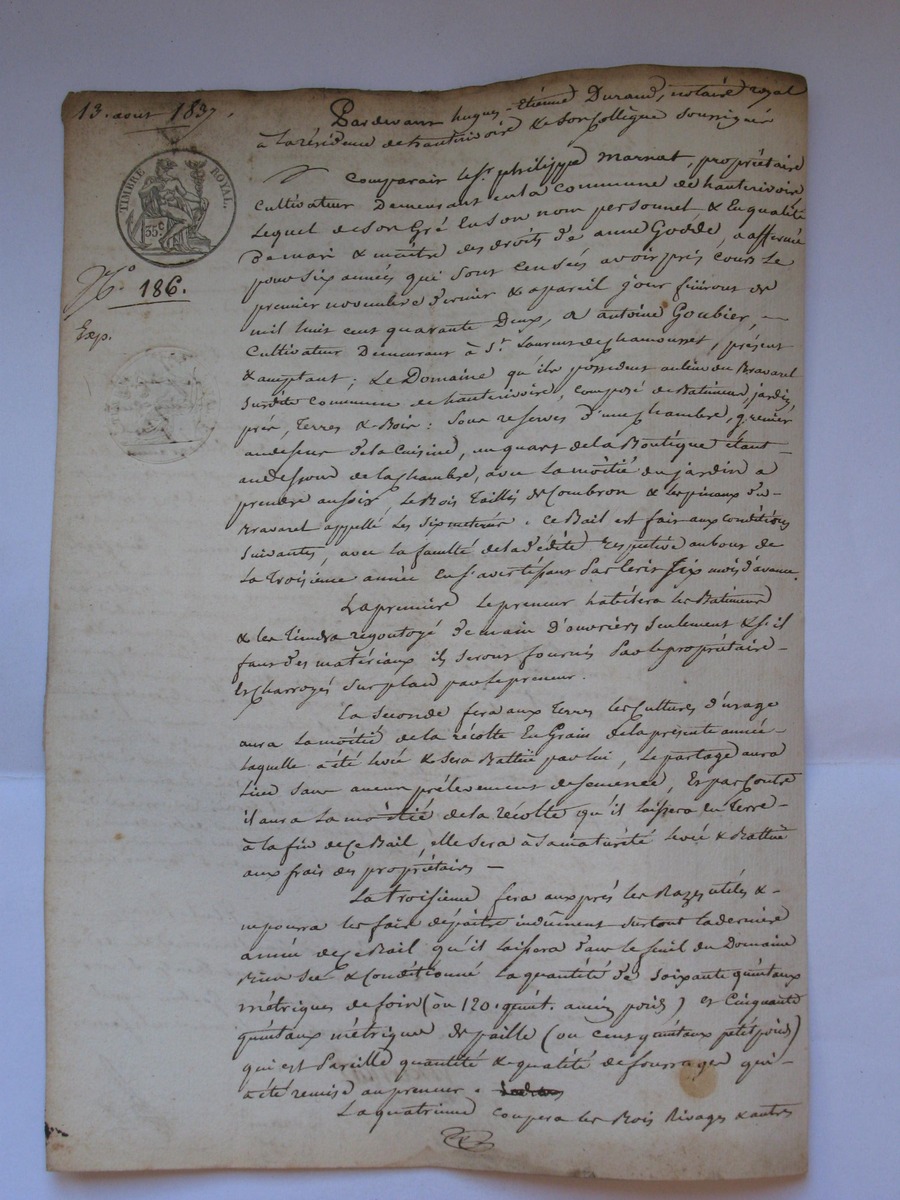 13. aout 1837.
Pardevant hugues-Etienne Durand, notaire royal
a la résidence de hauterivoire & son Collègue soussignés
TIMBRE ROYAL.
35 c
Comparait le Sr. philippe marnat, propriétaire
Cultivateur Demeurant en la Commune de hauterivoire
Lequel de son Gré En son nom personnel & En qualité
De mari & maitre des droits d'anne Goddé, a affermé
N.° 186.
pour six années qui sont censées avoir pris Cours Le
premier novembre dernier & a pareil jour finiront de
Exp.
mil huit cent quarante Deux, a antoine Goubier,
Cultivateur Demeurant à St. Laurent de Chamousset, présent
& acceptant; Le Domaine qu'ils possedent au lieu du Bravarel
Susdite Commune de hauterivoire, Composé de Batiment, jardin,
prés, Terres & Bois: Sous reserves d'une Chambre, grenier
au dessus de la Cuisine, un quart de la Boutique étant
au Dessous de la Chambre, avec La moitié du jardin a
prendre au soir, Le Bois Taillis de Combron & les pinaux du
Bravarel appellé Les Six . Ce Bail est fait aux conditions
Suivantes, avec la faculté de la dédite respective au bout de
La Troisième année En s'avertissant Par Ecrit Six mois d'avance.
La premiere Le preneur habitera les Batiments
& les Tiendra regoutoyé de main d'ouvriers Seulement & s'il
faut des matériaux ils seront fournis Par le propriétaire
Et Charroyés Sur plan par le preneur.
La Seconde fera aux Terres les Cultures d'usage
aura La moitié de la récolte En Grain de la présente année
Laquelle a été levée & sera Battue par lui, Le partage aura
Lieu Sans aucun prélèvement de semence, Et par Contre
il aura La moitié de la récolte qu'il laissera En Terre
à la fin de Ce Bail, elle sera à sa maturité levée & Battue
aux frais des propriétaires
La troisieme fera aux prés les Razes utiles &
ne pourra les faire dépaitre indûment surtout la derniere
année de Ce Bail qu'il laissera dans le fenil du Domaine
Bien Sec & Conditionné La quantité de Soixante quintaux
métriques de foin (ou 120 quint. ancien poids) et Cinquante
quintaux métriques de paille (ou cent quintaux petit poids)
qui est Pareille quantité & qualité de fourrages qui
a été remise au preneur.
La quatrieme Coupera les Bois Rivages & autres